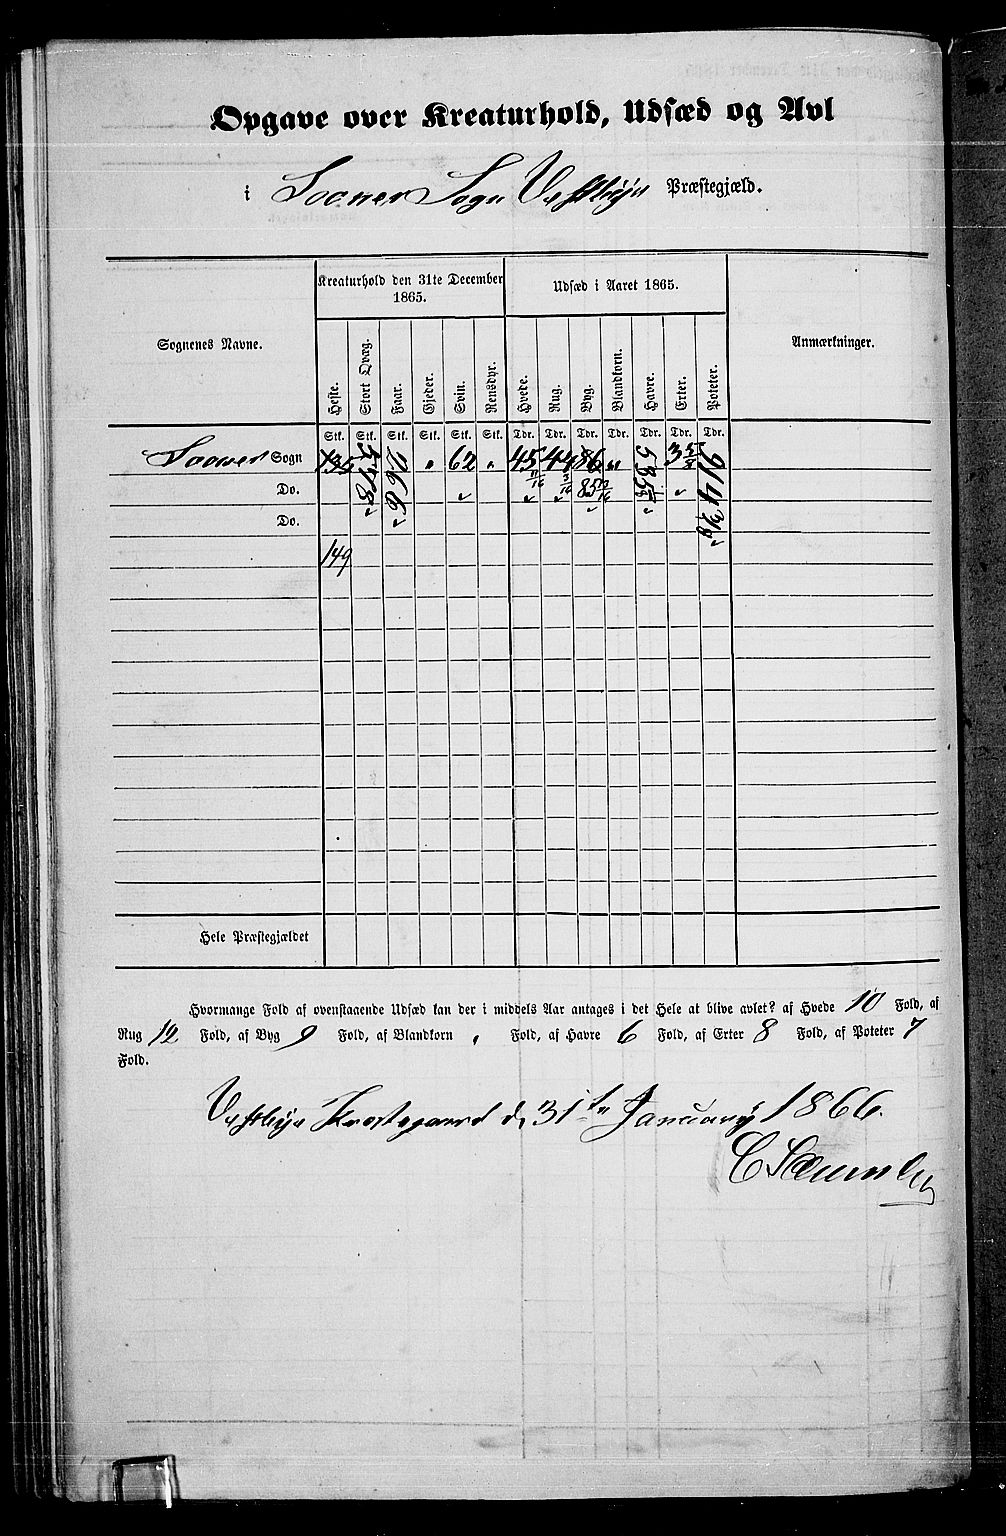 Opgave over Kreaturhold, Udsæd og Avl
i Saaner Sogn Vestby Præstegjæld.
Sognenes Navne.
Kreaturhold den 31te December 1865.
Udsæd i Aaret 1865.
Anmærkninger.
Heste. Stort Qvæg. Faar. Gjeder. Sviin. Rensdyr. Hvede. Rug. Byg. Blandkorn. Havre. Erter. Poteter.
Stk. Stk. Stk. Stk. Stk. Stk. Tdr. Tdr. Tdr. Tdr. Tdr. Tdr. Tdr.
Saaner Sogn 135 266 " 62 " 45 11/16 44 86 " 535 3 5/8 914
Do. 85
Do.
149
Hele Præstegjældet
Hvormange Fold af ovenstaaende Udsæd kan der i middels Aar antages i det Hele at blive avlet? af Hvede 10 Fold, af
Rug 12 Fold, af Byg 9 Fold, af Blandkorn " Fold, af Havre 6 Fold, af Erter 8 Fold, af Poteter 7
Fold.
Vestby Prestegaard d. 31te Januar 1866.